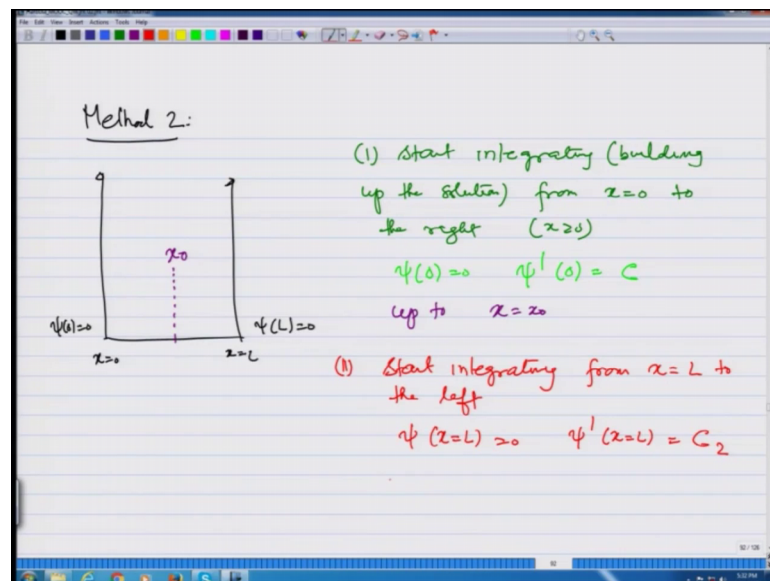 File Edit View Insert Actions Tools Help
Method 2:
(1) start integrating (building
up the solution) from x=0 to
the right (x≥0)
x0
ψ(0)=0 ψ'(0) = C
ψ(0)=0 ψ(L)=0
up to x = x0
x=0 x=L
(11) Start integrating from x=L to
the left
ψ (x=L) =0 ψ'(x=L) = C2
92 / 126
92
5:32 PM